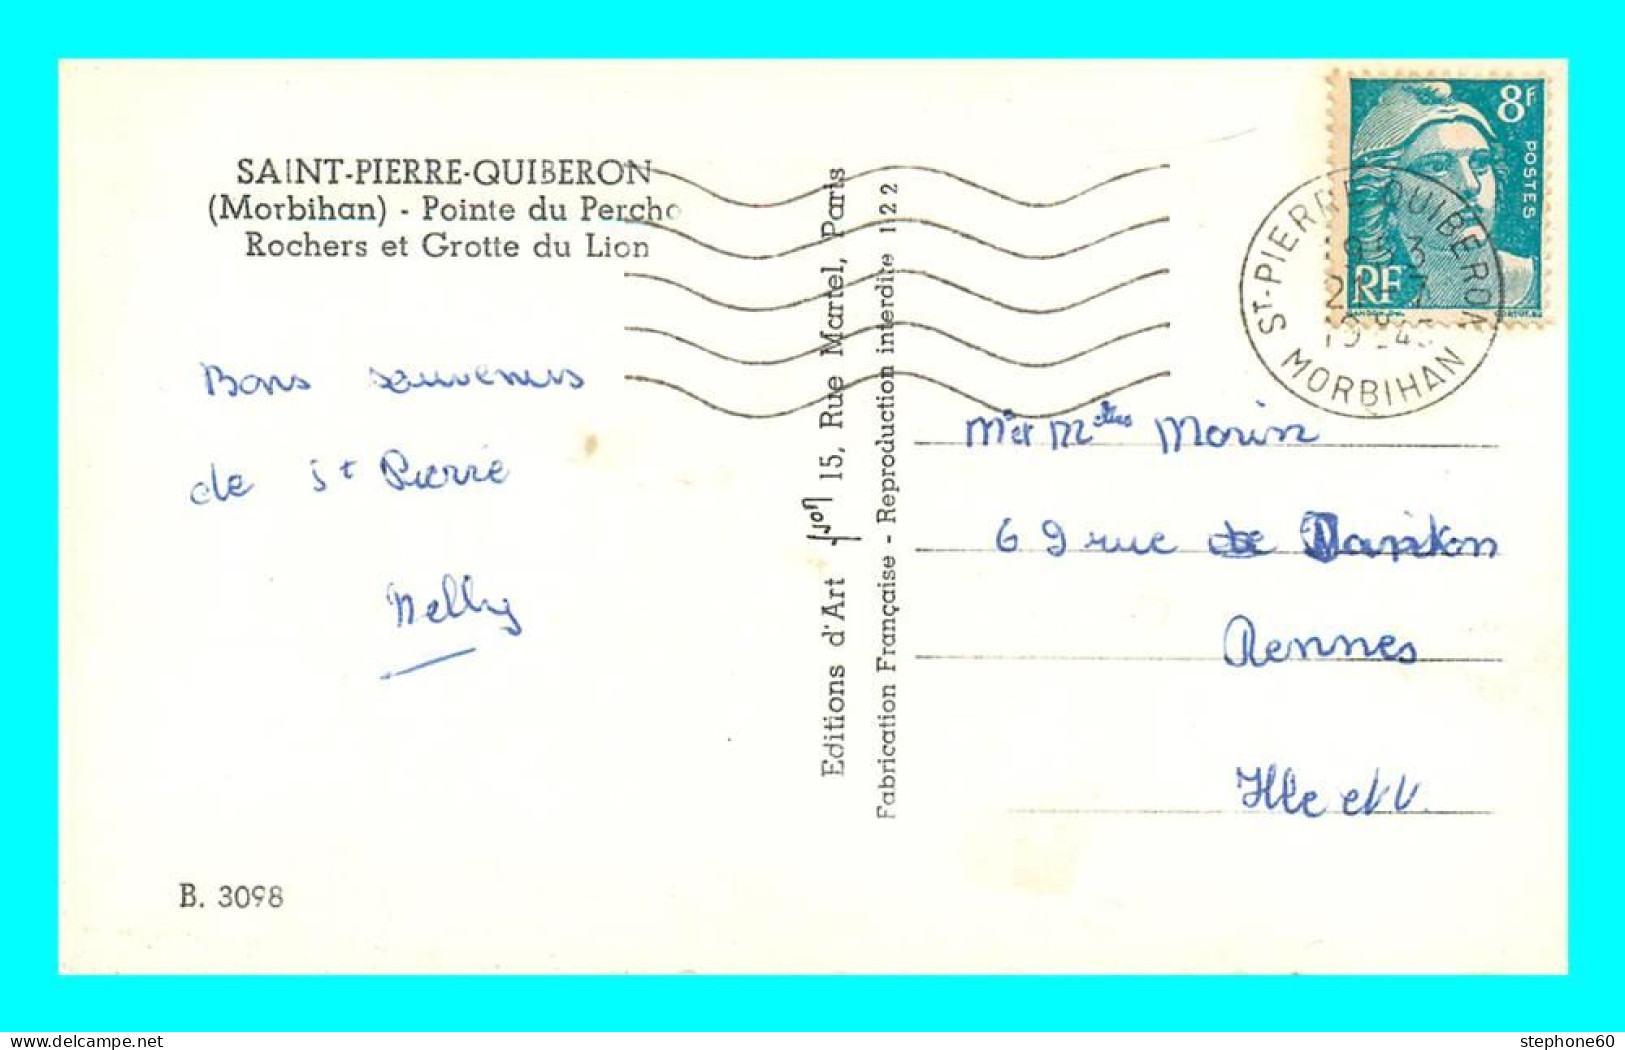 SAINT-PIERRE-QUIBERON
(Morbihan) - Pointe du Percho
Rochers et Grotte du Lion
Bons souvenirs
de St Pierre
Nelly
B. 3098
Editions d'Art Yvon 15, Rue Martel, Paris
Fabrication Française - Reproduction interdite 122
8F
POSTES
RF
ST-PIERRE QUIBERON
MORBIHAN
Mr et Melles Morin
69 rue de
Rennes
Ille et V.
stephone60